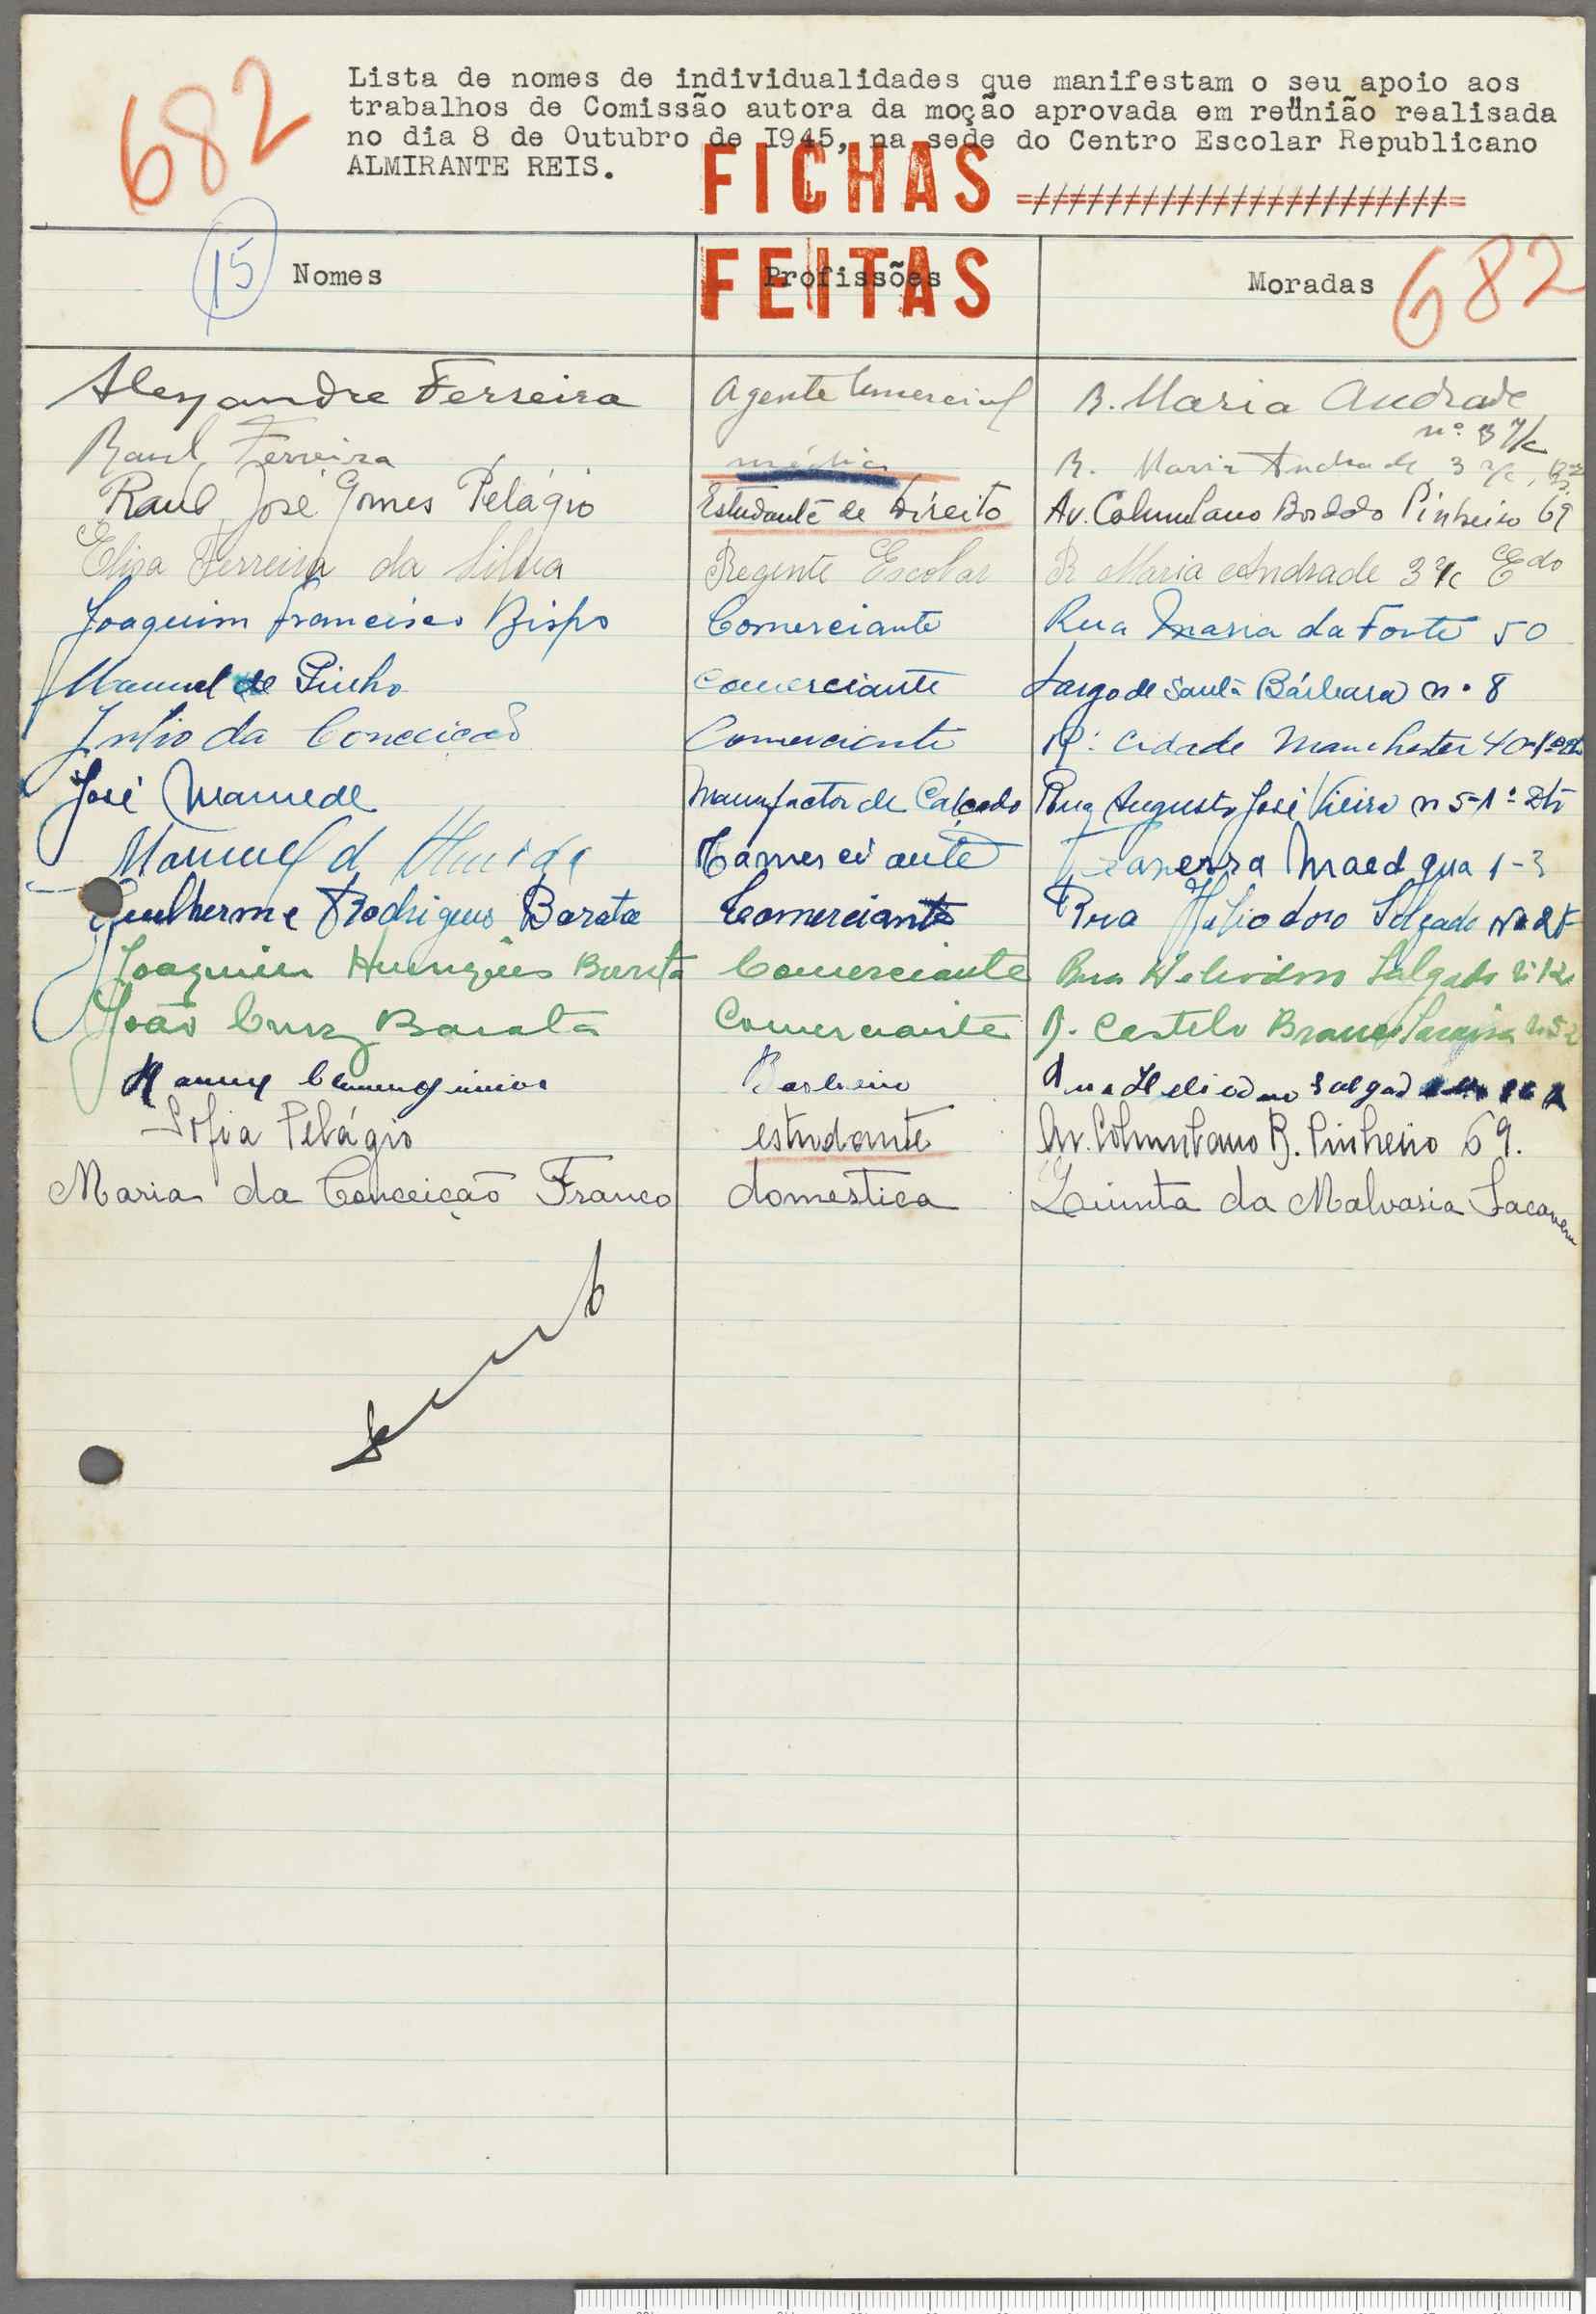 682
Lista de nomes de individualidades que manifestam o seu apoio aos
trabalhos de Comissão autora da moção aprovada em reünião realisada
no dia 8 de Outubro de I945, na sede do Centro Escolar Republicano
ALMIRANTE REIS.
FICHAS
FEITAS
15
Nomes Profissões Moradas 682
Alexandre Ferreira Agente Comercial R. Maria Andrade
nº 3 r/c
Raul Ferreira médico R. Maria Andrade, 3 r/c,
Raúl José Gomes Pelágio Estudante de Direito Av. Columbano Bordalo Pinheiro 69
Elisa Ferreira da Silva Regente Escolar R Maria Andrade 3 r/c Edo
Joaquim Francisco Bispo Comerciante Rua Maria da Fonte 50
Manuel de Pinho Comerciante Largo de Santa Bárbara n. 8
Julio da Conceição Comerciante R. Cidade Manchester 40-1º
José Mamede Manufactor de Calçado Rua Augusto José Vieira n 5-1º Dto
Manuel d Almeida Comerciante 1-3
Guilherme Rodrigues Barata Comerciante Rua Heliodoro Salgado
Joaquim Barata Comerciante Rua Heliodoro Salgado
João Cruz Barata Comerciante R. Castelo Branco Saraiva
Barbeiro Rua Heliodoro Salgado
Sofia Pelágio estudante Av. Columbano B. Pinheiro 69.
Maria da Conceição Franco domestica Quinta da Malvasia Sacavem